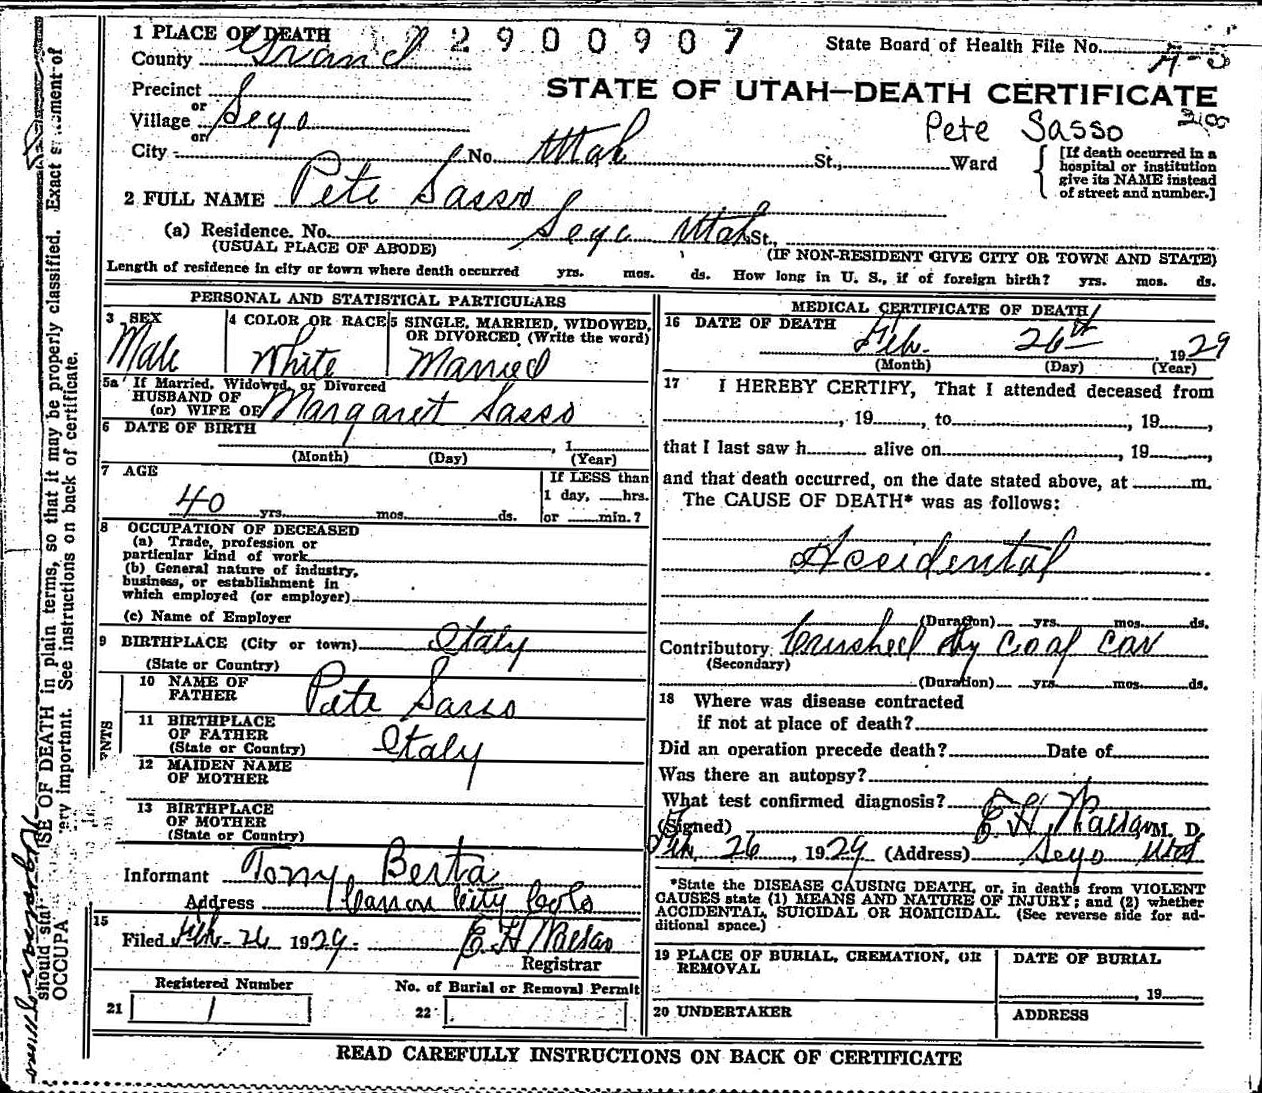 1 PLACE OF DEATH
2900907
State Board of Health File No.
A-3
County Grand
STATE OF UTAH—DEATH CERTIFICATE
Precinct
or
Village Sego
or
Pete Sasso
City No. Utah St., Ward
[If death occurred in a
hospital or institution
give its NAME instead
of street and number.]
2 FULL NAME Pete Sasso
(a) Residence. No. Sego Utah St.,
(USUAL PLACE OF ABODE) (IF NON-RESIDENT GIVE CITY OR TOWN AND STATE)
Length of residence in city or town where death occurred yrs. mos. ds. How long in U. S., if of foreign birth? yrs. mos. ds.
PERSONAL AND STATISTICAL PARTICULARS
3 SEX
Male
4 COLOR OR RACE
White
5 SINGLE, MARRIED, WIDOWED,
OR DIVORCED (Write the word)
Married
5a If Married, Widowed, or Divorced
HUSBAND OF
(or) WIFE OF Margaret Sasso
6 DATE OF BIRTH
, 1
(Month) (Day) (Year)
7 AGE
40 yrs. mos. ds.
If LESS than
1 day, hrs.
or min.?
8 OCCUPATION OF DECEASED
(a) Trade, profession or
particular kind of work
(b) General nature of industry,
business, or establishment in
which employed (or employer)
(c) Name of Employer
9 BIRTHPLACE (City or town) Italy
(State or Country)
10 NAME OF
FATHER Pete Sasso
11 BIRTHPLACE
OF FATHER
(State or Country) Italy
12 MAIDEN NAME
OF MOTHER
13 BIRTHPLACE
OF MOTHER
(State or Country)
Informant Tony Berta
Address Canon City Colo
15
Filed Feb - 26 1929. E H
Registrar
Registered Number
21 1
No. of Burial or Removal Permit
22
MEDICAL CERTIFICATE OF DEATH
16 DATE OF DEATH
Feb. 26th, 1929
(Month) (Day) (Year)
17 I HEREBY CERTIFY, That I attended deceased from
, 19 , to , 19 ,
that I last saw h alive on , 19 ,
and that death occurred, on the date stated above, at m.
The CAUSE OF DEATH* was as follows:
Accidental
(Duration) yrs. mos. ds.
Contributory Crushed by Coal Car
(Secondary)
(Duration) yrs. mos. ds.
18 Where was disease contracted
if not at place of death?
Did an operation precede death? Date of
Was there an autopsy?
What test confirmed diagnosis?
(Signed) E H M. D.
Feb. 26, 1929 (Address) Sego Utah
*State the DISEASE CAUSING DEATH, or, in deaths from VIOLENT
CAUSES state (1) MEANS AND NATURE OF INJURY; and (2) whether
ACCIDENTAL, SUICIDAL OR HOMICIDAL. (See reverse side for ad-
ditional space.)
19 PLACE OF BURIAL, CREMATION, OR
REMOVAL
DATE OF BURIAL
, 19
20 UNDERTAKER
ADDRESS
READ CAREFULLY INSTRUCTIONS ON BACK OF CERTIFICATE
SE OF DEATH in plain terms, so that it may be properly classified. Exact
ery important. See instructions on back of certificate.
should sta
OCCUPA